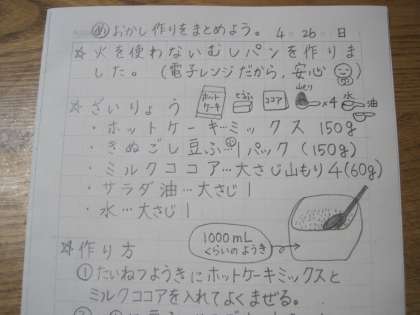 め おかし作りをまとめよう。 4 26 日
☆ 火を使わないむしパンを作りま
した。(電子レンジだから、安心
☆ ざいりょう ホットケーキ とうふ ココア 山もり ×4 水 油
・ホットケーキミックス 150g
・きぬごし豆ふ…1パック(150g)
・ミルクココア…大さじ山もり4(60g)
・サラダ油…大さじ1
・水…大さじ1
1000mL
くらいのようき
☆ 作り方
① たいねつようきにホットケーキミックスと
ミルクココアを入れてよくまぜる。